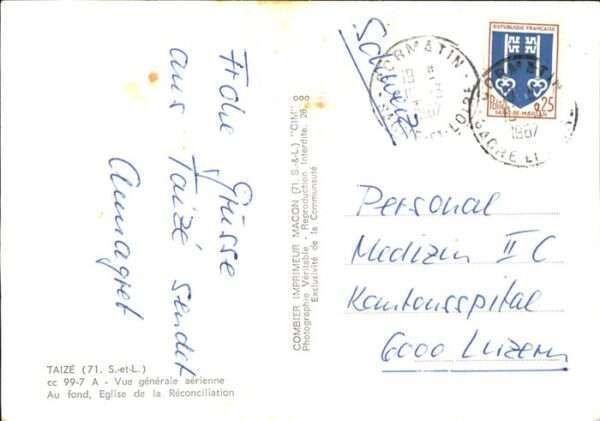 Frohe Grüsse
aus Taizé sendet
Annagret
TAIZÉ (71. S.-et-L.)
cc 99-7 A - Vue générale aérienne
Au fond, Eglise de la Réconciliation
COMBIER IMPRIMEUR MACON (71. S.-&-L.) "CIM"
Photographie Véritable - Reproduction Interdite.
Exclusivité de la Communauté
Schweiz
CORMATIN
1967
REPUBLIQUE FRANÇAISE
0,25
MONT-DE-MARSAN
CORMATIN
1967
SAONE ET LOIRE
Personal
Medizin II C
Kantonsspital
6000 Luzern